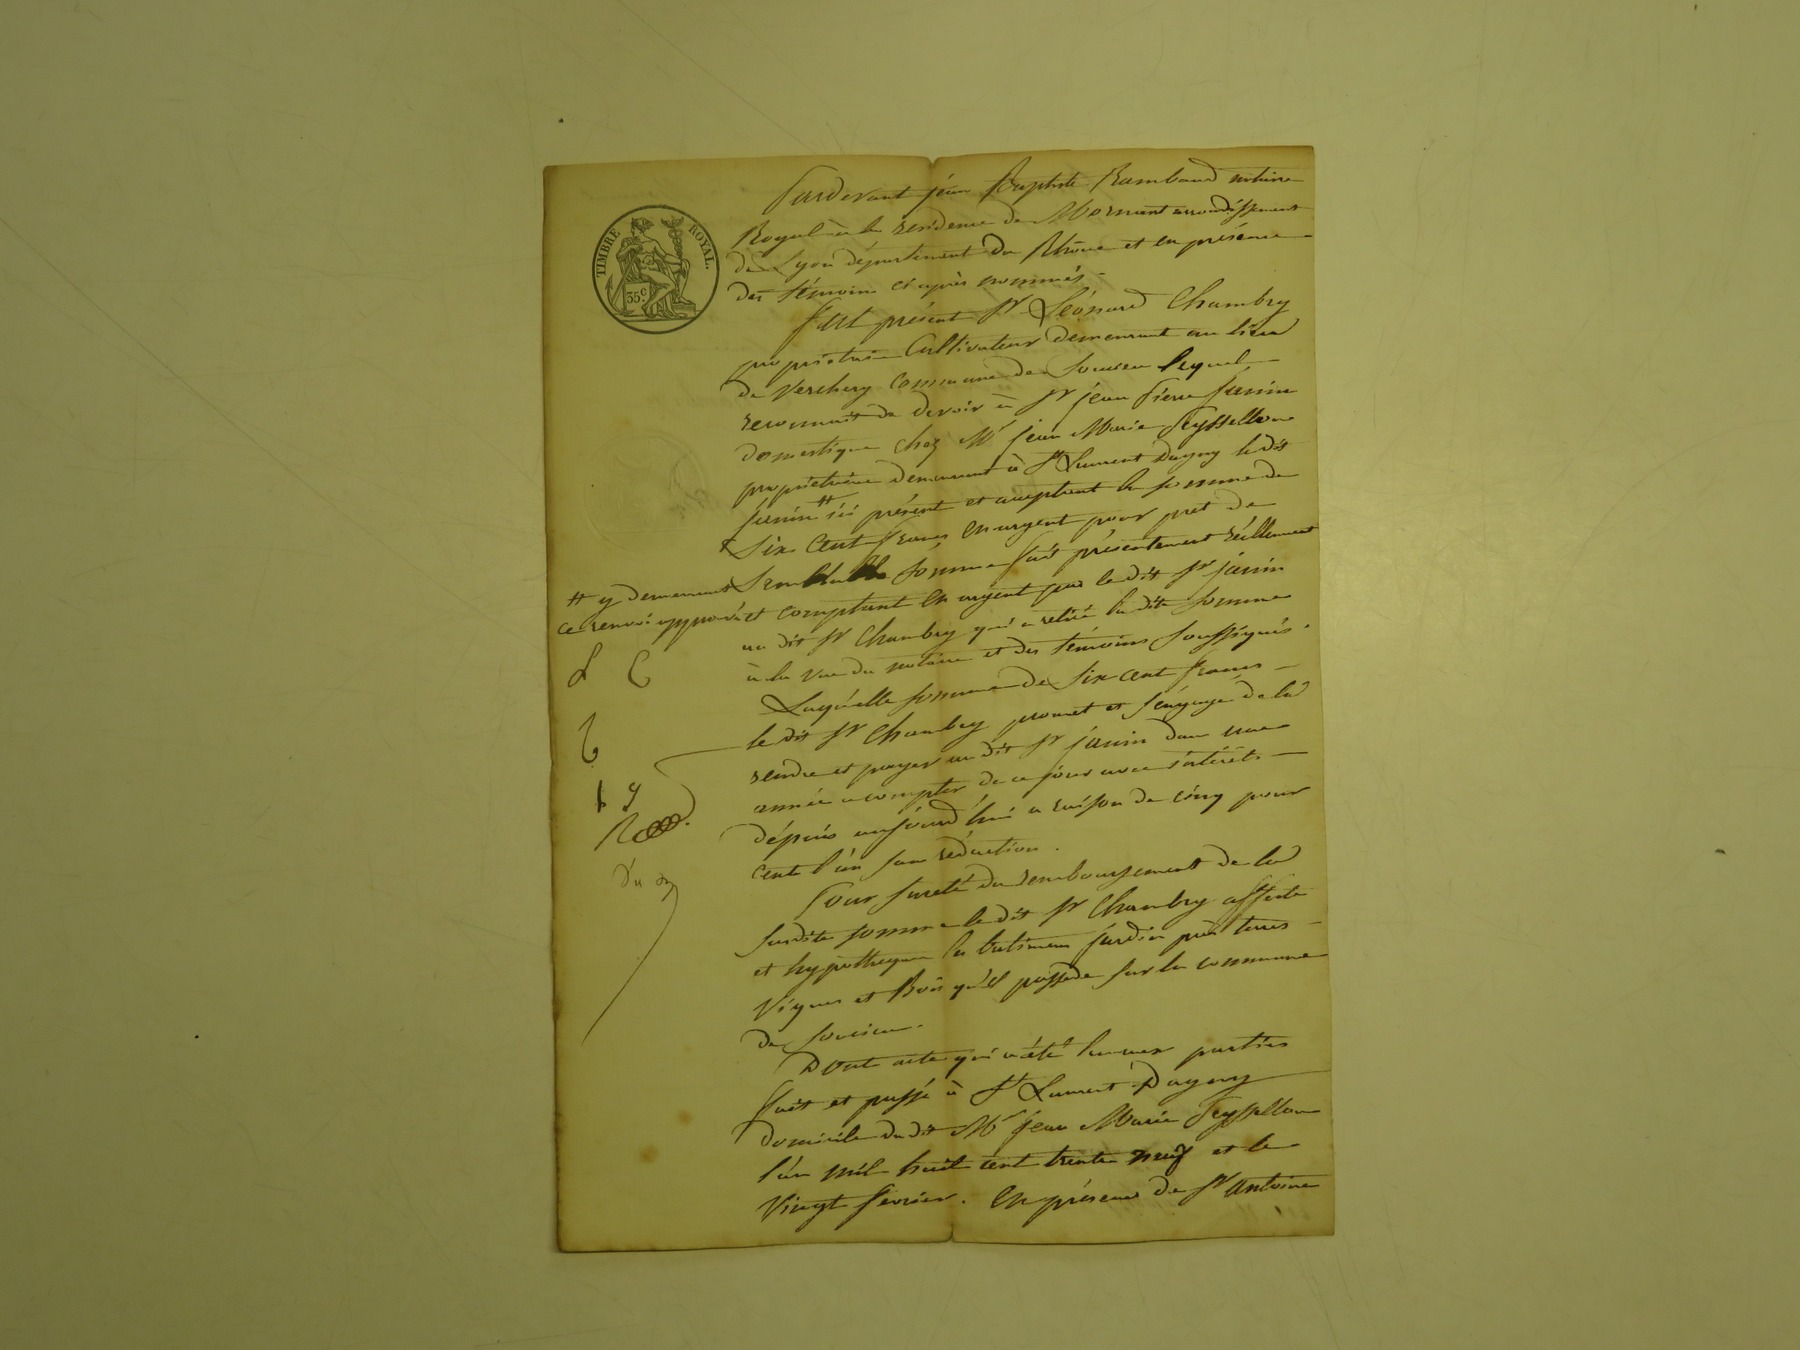 TIMBRE ROYAL.
35c
Pardevant jéan Baptiste Rambaud notaire
Royal à la residence de Mornant arrondissement
de Lyon département du Rhône et en présence
des témoins ci après nommés.
fut présent Sr Léonard Chambry
propriétaire Cultivateur demeurant au lieu
de Verchery commune de Soucieu lequel
reconnait de devoir à Sr jean Pierre janin
domestique chez Mr jean Marie Peyssellon
propriétaire demeurant à St Laurent Dagny le dit
janin # ici présent et acceptant la somme de
Six Cent francs en argent pour pret de
Semblable Somme fait présentement réellement
et comptant en argent par le dit Sr janin
au dit Sr Chambry qui a retiré la dite somme
à la vue du notaire et des témoins soussignés.
Laquélle somme de six cent francs
le dit Sr Chambry promet et s'éngage de la
rendre et payer au dit Sr janin dans une
année a compter de ce jour avec intérêts
dépuis aujourd'hui a raison de cinq pour
cent l'an sans réduction.
Pour sureté du remboursement de la
susdite somme le dit Sr Chambry affecte
et hypotheque les batimens jardin près terres
Vignes et Bois qu'il possède sur la commune
de Soucieu.
Dont acte qui a été lu aux parties
fait et passé à St Laurent Dagny
domicile du dit Mr jean Marie Peyssellon
l'an mil huit cent trente neuf et le
Vingt fevrier. En présence de Sr Antoine
# y demeurant
ce renvoi approuvé
L C